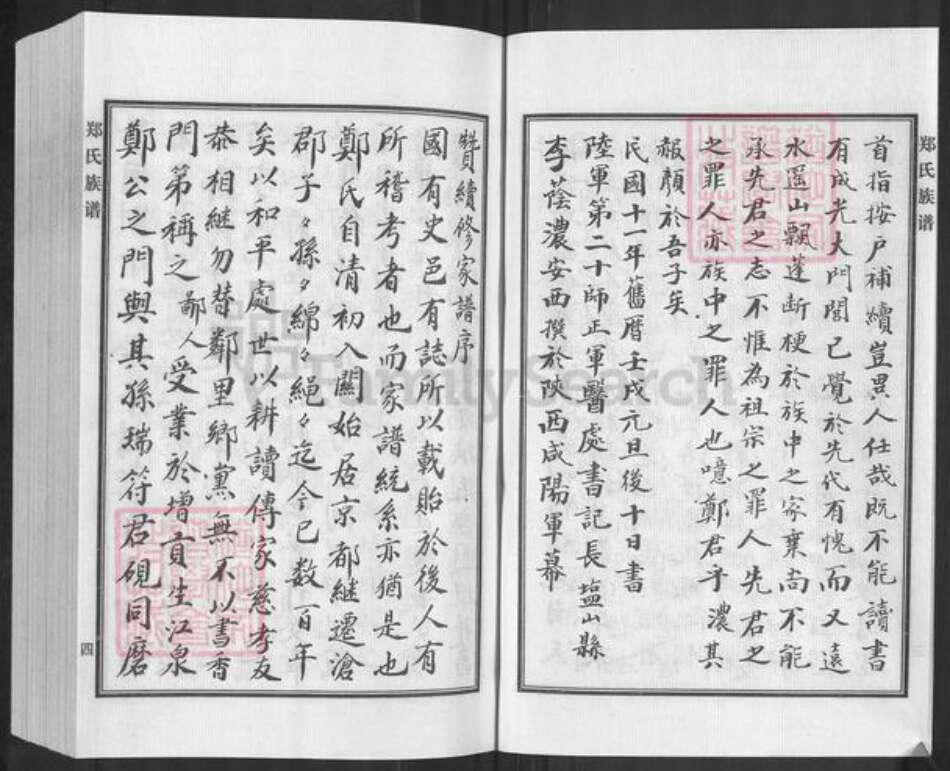 郑氏族谱
首指按户補續豈異人任哉既不能讀書
有成光大門閭已覺於先代有愧而又遠
水遥山飄蓬断梗於族中之家乘尚不能
承先君之志不惟為祖宗之罪人先君之
之罪人亦族中之罪人也噫鄭君乎濃其
赧顏於吾子矣
民國十一年舊曆壬戌元旦後十日書
陸軍第二十師正軍醫處書記長塩山縣
李蔭濃安西撰於陝西咸陽軍幕
贊續修家譜序
國有史邑有誌所以載貽於後人有
所稽考者也而家譜統系亦猶是也
鄭氏自清初入關始居京都継遷滄
郡子々孫々綿々縄々迄今已数百年
矣以和平處世以耕讀傳家慈孝友
恭相継勿替鄰里鄉黨無不以書香
門第稱之鄙人受業於增貢生江泉
鄭公之門與其孫瑞符君硯同磨
郑氏族谱
四
FamilySearch